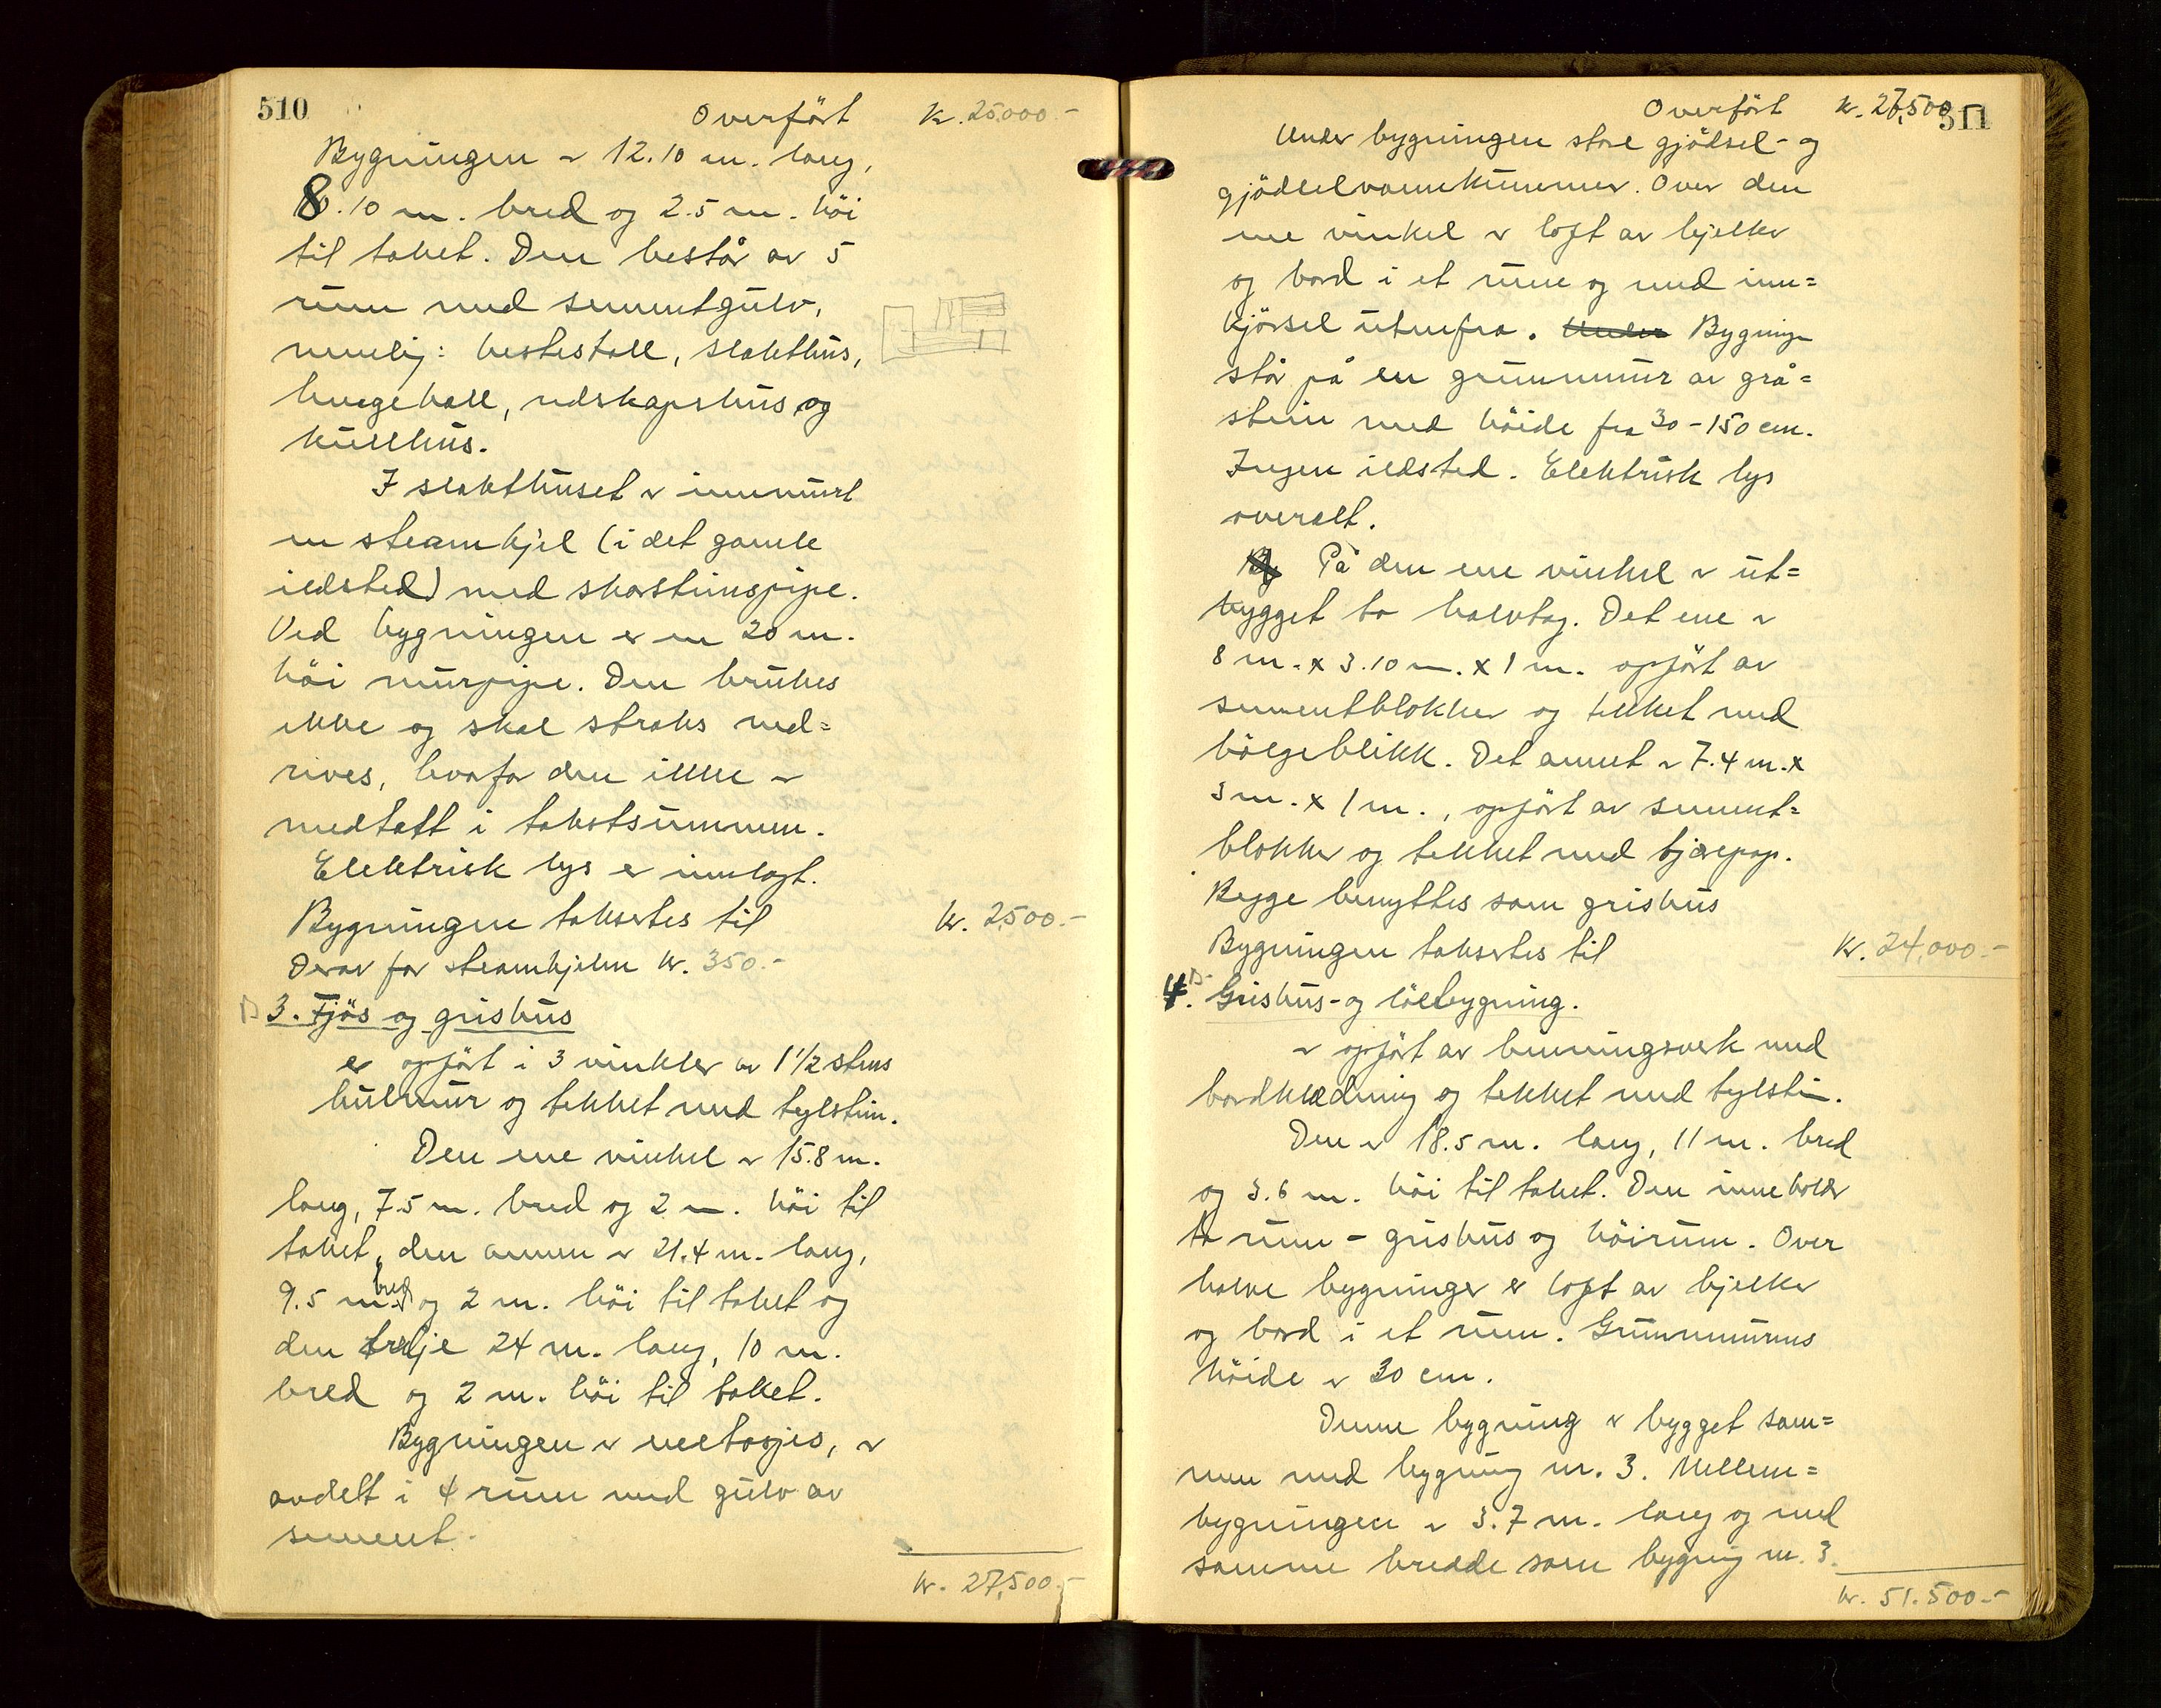 510
Overfört kr. 25.000.-
Bygningen er 12.10 m. lang,
8.10 m. bred og 2.5 m. höi
til taket. Den består av 5
rum med sementgulv,
nemlig: hestestall, slakthus,
hengehall, redskapshus og
kullhus.
I slakthuset er innmurt
en steamkjel (i det gamle
ildsted) med skorsteinspipe.
Ved bygningen er en 20 m.
höi murpipe. Den brukes
ikke og skal straks ned=
rives, hvorfor den ikke er
medtatt i takstsummen.
Elektrisk lys er innlagt.
Bygningen takseres til kr. 2500.-
Derav for steamkjelen kr. 350.-
3. Fjös og grishus
er opfört i 3 vinkler av 1 1/2 stens
hulmur og tekket med teglstein.
Den ene vinkel er 15.8 m.
lang, 7.5 m. bred og 2 m. höi til
taket, den annen er 21.4 m. lang,
9.5 m. bred og 2 m. höi til taket og
den tredje 24 m. lang, 10 m.
bred og 2 m. höi til taket.
Bygningen er enetasjes, er
avdelt i 4 rum med gulv av
sement.
kr. 27,500.-
511
Overfört kr. 27,500
Under bygningen store gjödsel- og
gjödselvannkummer. Over den
ene vinkel er loft av bjelker
og bord i et rum og med inn=
kjörsel utenfra. Under Bygningen
står på en grunnmur av grå=
stein med höide fra 30-150 cm.
Ingen ildsted. Elektrisk lys
overalt.
På den ene vinkel er ut=
bygget to halvtag. Det ene er
8 m. x 3.10 m. x 1 m. opfört av
sementblokker og tekket med
bölgeblikk. Det annet er 7.4 m. x
3 m. x 1 m., opfört av sement=
blokker og tekket med tjærepap.
Begge benyttes som grishus
Bygningen takseres til kr. 24,000.-
4. Grishus- og löebygning.
er opfört av binningsverk med
bordklædning og tekket med teglstein.
Den er 18.5 m. lang, 11 m. bred
og 3.6 m. höi til taket. Den inneholder
to rum - grishus og höirum. Over
halve bygningen er loft av bjelker
og bord i et rum. Grunnmurens
höide er 30 cm.
Denne bygning er bygget sam=
men med bygning nr. 3. Mellem=
bygningen er 3.7 m. lang og med
samme bredde som bygning nr. 3.
kr. 51.500.-